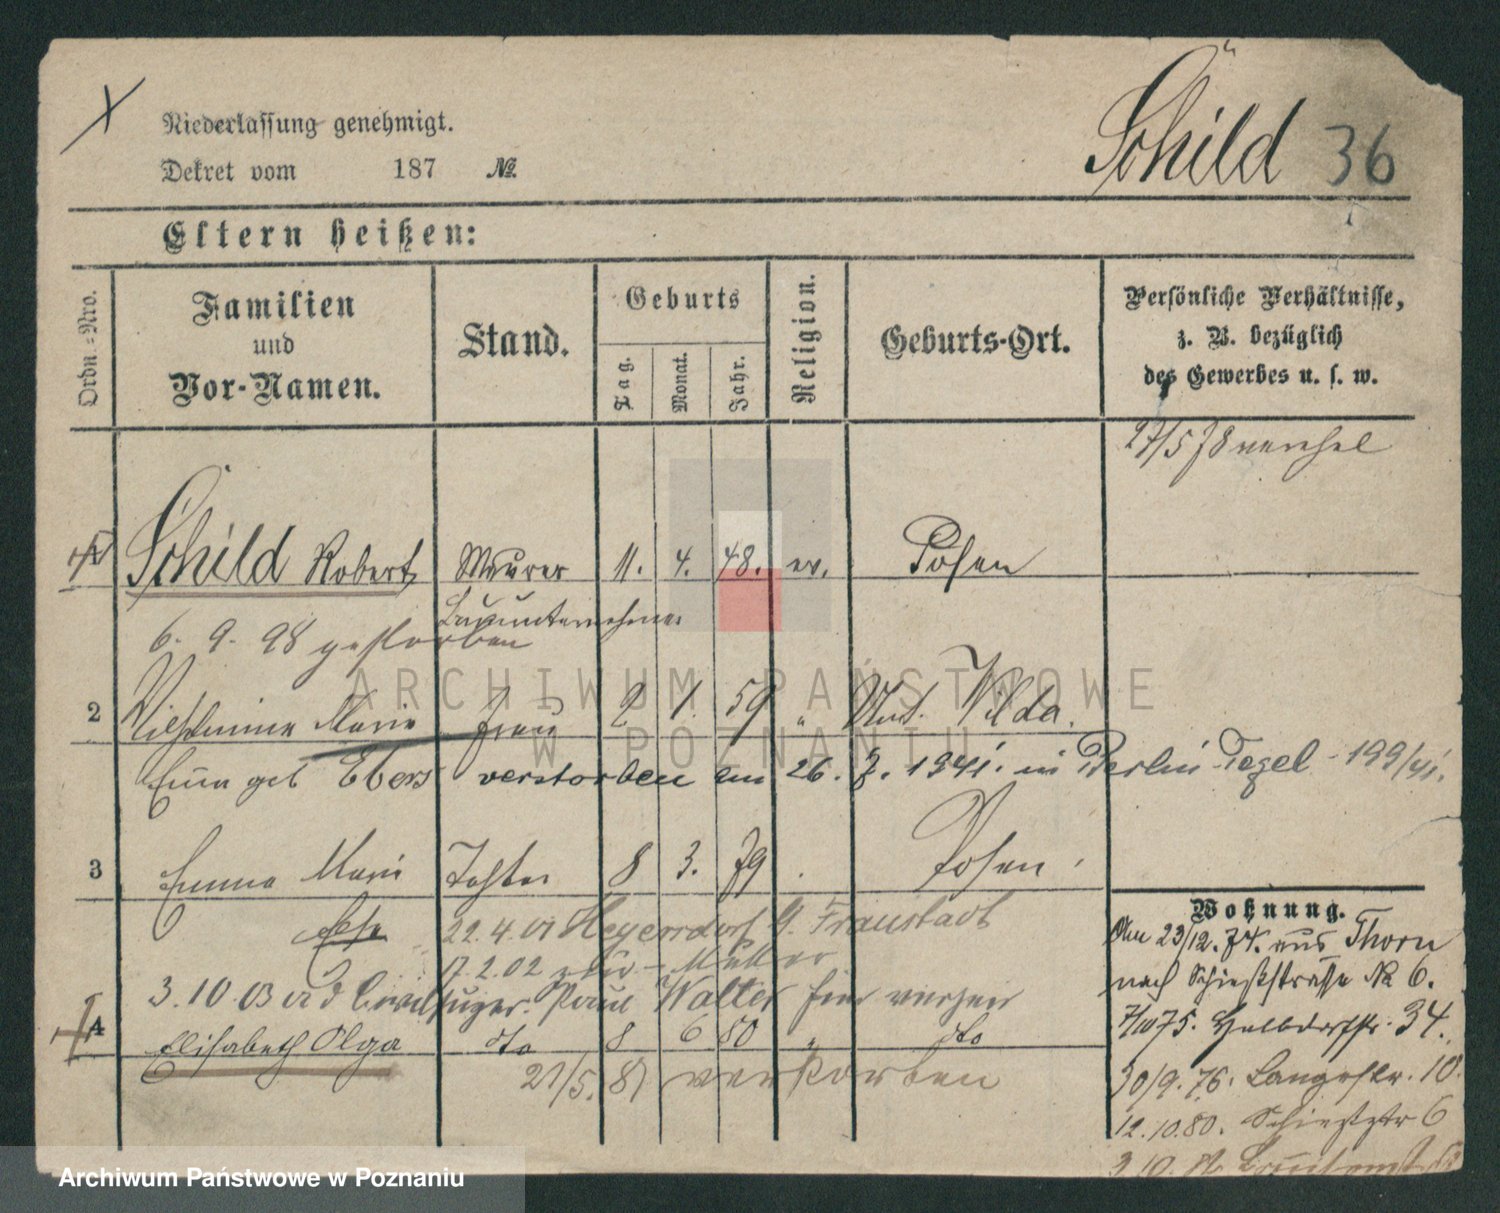 Schild 36
Niederlassung genehmigt.
Dekret vom 187 №
Eltern heißen:
Ordn.-Nro.
Familien und Vor-Namen.
Stand.
Geburts
Tag.
Monat.
Jahr.
Religion.
Geburts-Ort.
Persönliche Verhältnisse,
z. B. bezüglich
des Gewerbes u. s. w.
27/5 78
1 Schild Robert Maurer 11. 4. 48. ev. Posen
Bauunternehmer
6. 9. 98 gestorben
2 Wilhelmine Marie Frau 2 1. 59 " Wilda.
geb Ebers verstorben am 26. 1941. in Berlin Tegel - 199/41.
3 Emma Marie Tochter 8 3. 79 Posen.
22.4.01 Heyersdorf Fraustadt
17.2.02
3.10.03 Paul Walter
4 Elisabeth Olga dto 8 6 80 " dto
21/5. 81 verstorben
Wohnung.
Am 23/12. 74. aus Thorn
nach Schießstrasse № 6.
7/10 75. Halbdorfstr. 34.
30/9. 76. Langestr. 10.
12.10.80. Schießstr 6
3.10.
ARCHIWUM PAŃSTWOWE
W POZNANIU
Archiwum Państwowe w Poznaniu